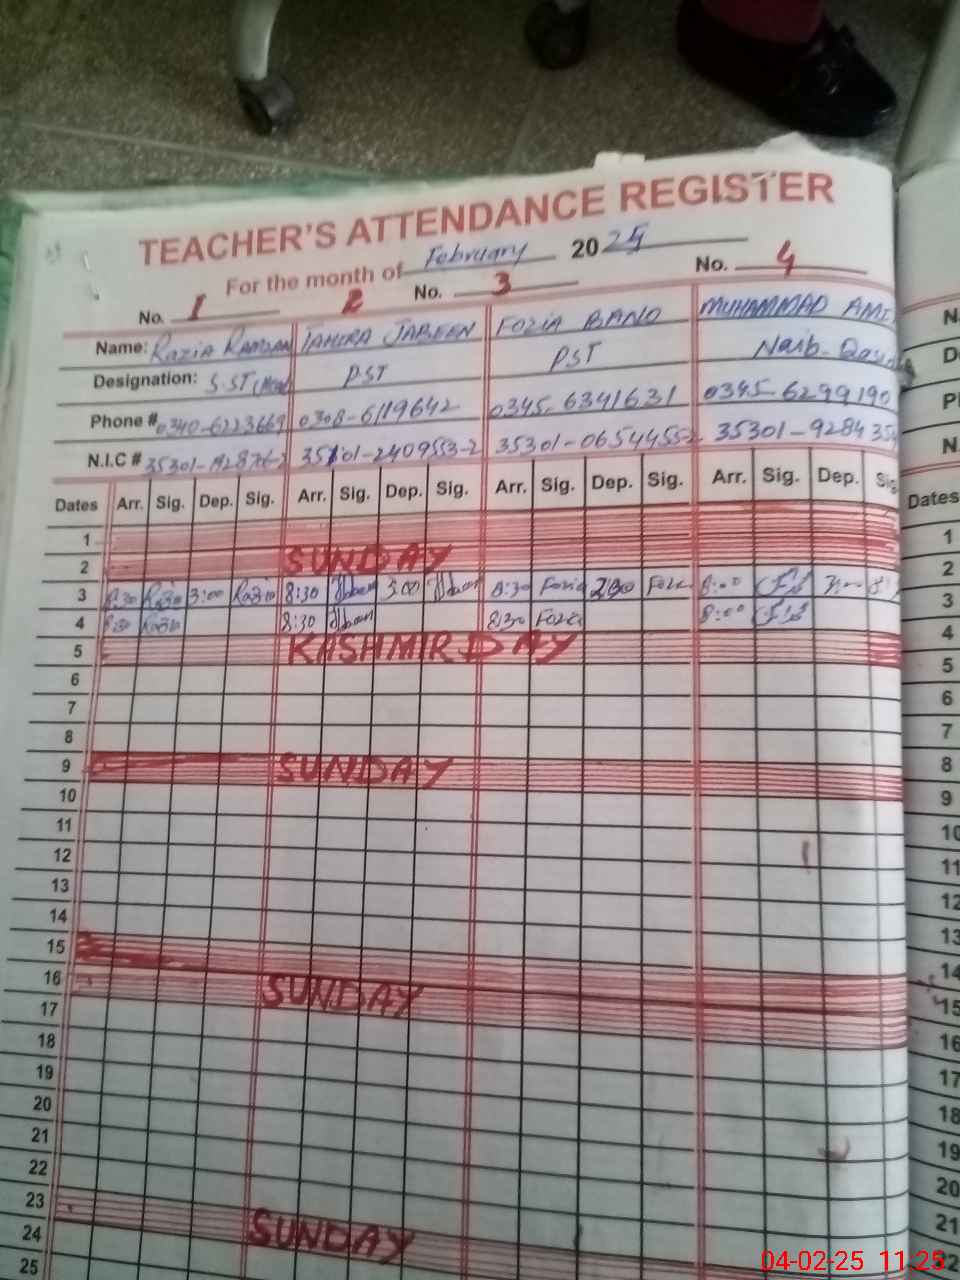 TEACHER'S ATTENDANCE REGISTER
For the month of February 2025
No. 1 2 No. 3 No. 4
Name: Razia Ramzan TAHIRA JABEEN FOZIA BANO MUHAMMAD
Designation: S.ST PST PST Naib-
Phone # 0340-6223669 0308-6119642 0345-6341631 0345-6299190
N.I.C # 35301- 35101-2409553-2 35301-0654455-2 35301-9284
Dates Arr. Sig. Dep. Sig. Arr. Sig. Dep. Sig. Arr. Sig. Dep. Sig. Arr. Sig. Dep. Dates
1 1
2 SUNDAY 2
3 8:30 Razia 3:00 Razia 8:30 3:00 8:30 Fozia Fozia 8:00 3
4 8:30 Razia 8:30 8:30 Fozia 8:00 4
5 KASHMIR DAY 5
6 6
7 7
8 8
9 SUNDAY 9
10 10
11 11
12 12
13 13
14 14
15 15
16 SUNDAY 16
17 17
18 18
19 19
20 20
21 21
22
23
24 SUNDAY
25
04-02-25 11:25